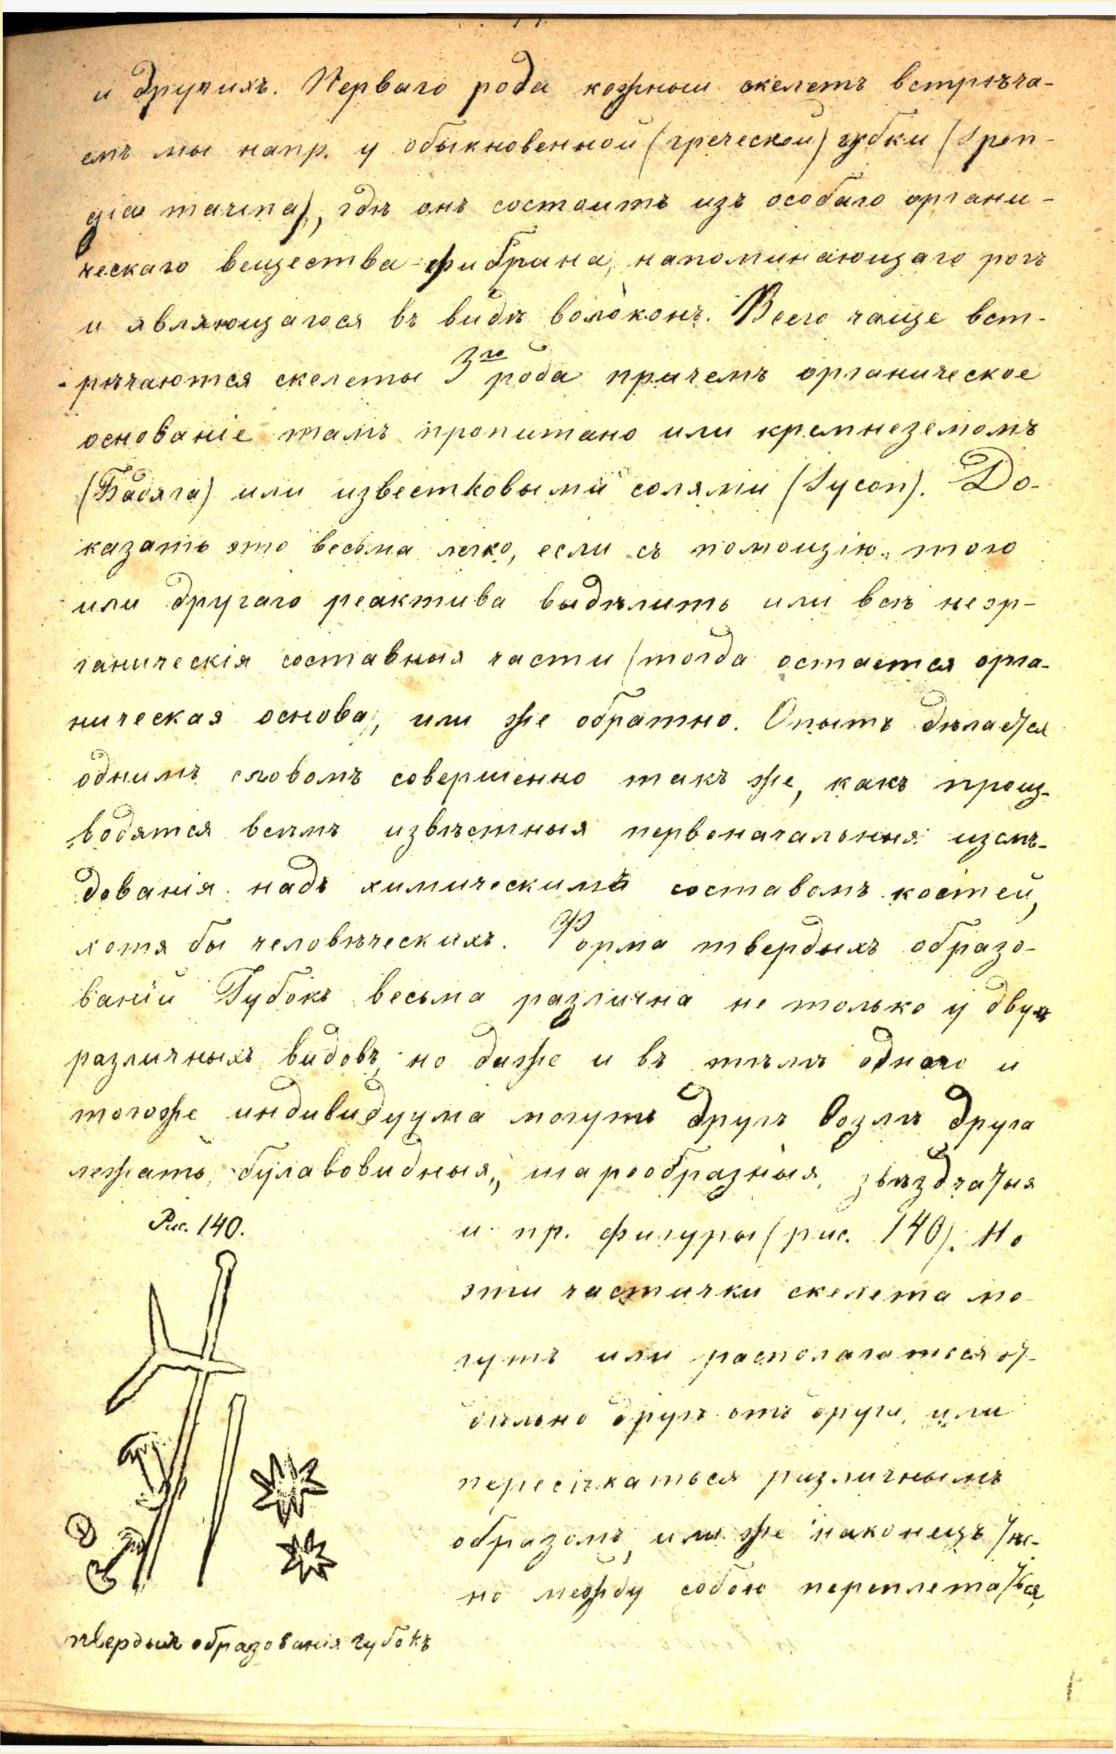 и другихъ. Перваго рода кожный скелетъ встрѣча-
емъ мы напр. у обыкновенной (греческой) губки (Spon-
gia marina), гдѣ онъ состоитъ изъ особаго органи-
ческаго вещества фибрина, напоминающаго рогъ
и являющагося въ видѣ волоконъ. Всего чаще вст-
рѣчаются скелеты 3го рода причемъ органическое
основаніе тамъ пропитано или кремнеземомъ
(Бадяга) или известковыми солями (Sycon). До-
казать это весьма легко, если съ помощію тою
или другаго реактива выдѣлить или всѣ неор-
ганическія составныя части (тогда остается орга-
ническая основа), или же обратно. Опытъ дѣлается
однимъ словомъ совершенно такъ же, какъ произ-
водятся всѣмъ извѣстныя первоначальныя изслѣ-
дованія надъ химическимъ составомъ костей,
хотя бы человѣческихъ. Форма твердыхъ образо-
ваній Губокъ весьма различна не только у двухъ
различныхъ видовъ, но даже и въ тѣлѣ одного и
тогоже индивидуума могутъ другъ возлѣ друга
лежать булавовидныя, шарообразныя, звѣздчатыя
и пр. фигуры (рис. 140). Но
эти частички скелета мо-
гутъ или располагаться от-
дѣльно другъ отъ друга, или
пересѣкаться различнымъ
образомъ, или же наконецъ тѣс-
но между собою переплетаться,
Рис. 140.
твердыя образованія губокъ